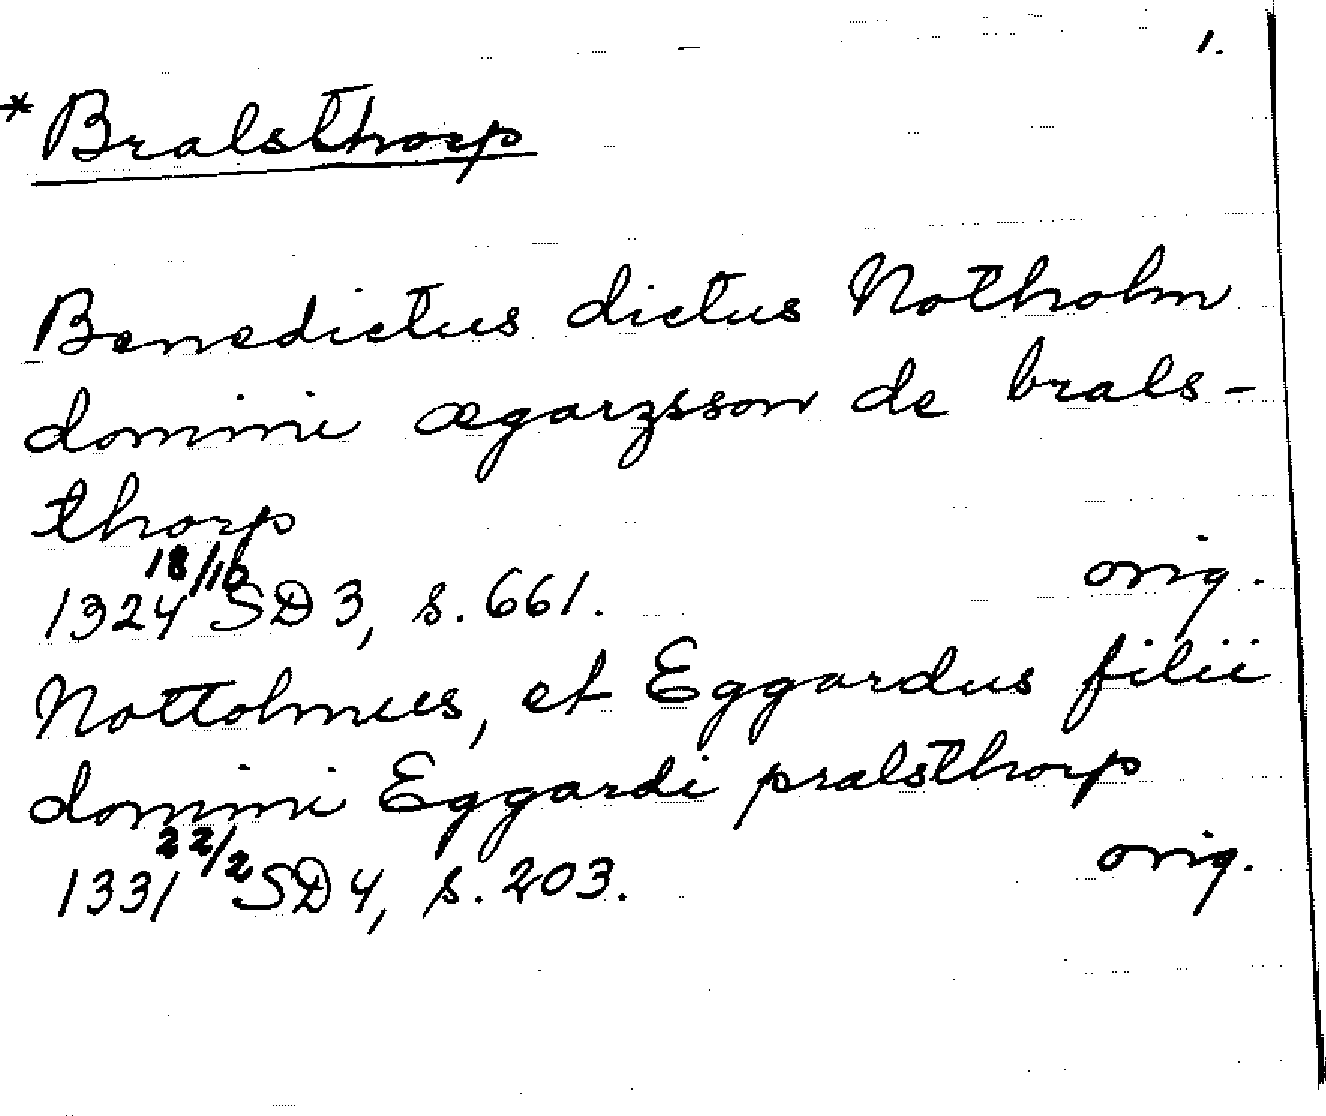 1.
* Bralsthorp
Benedictus dictus Notholm
domini ægarzsson de brals-
thorp
1324 18/10 SD 3, s. 661. orig.
Nottolmus, et Eggardus filii
domini Eggardi pralsthorp
1331 22/2 SD 4, s. 203. orig.